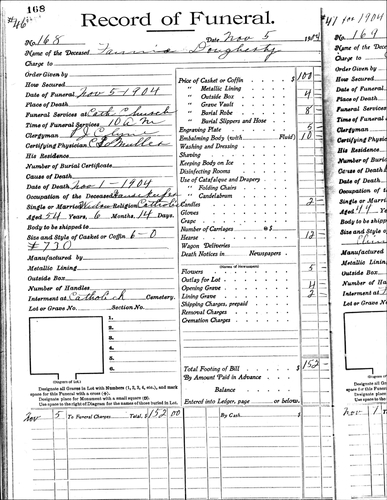 168
#46
Record of Funeral.
No. 168 Date Nov 5 1904
Name of the Deceased Fannie Dougherty
Charge to
Order Given by
How Secured
Date of Funeral Nov 5-1904
Place of Death
Funeral Services at Cath Church
Time of Funeral Services 10 A M
Clergyman
Certifying Physician
His Residence
Number of Burial Certificate
Cause of Death
Date of Death Nov 1-1904
Occupation of the Deceased Housekeeper
Single or Married Widow Religion Catholic
Aged 54 Years, 6 Months, 14 Days.
Body to be shipped to
Size and Style of Casket or Coffin 6-0
#730
Manufactured by
Metallic Lining
Outside Box
Number of Handles
Interment at Catholick Cemetery.
Lot or Grave No. Section No.
1.
2.
3.
4.
5.
6.
(Diagram of Lot.)
Designate all Graves in Lot with Numbers (1, 2, 3, 4, etc.), and mark
space for this Funeral with a cross (+).
Designate place for Monument with a small square (□).
Use space to the right of Diagram for the names of those buried in Lot.
Price of Casket or Coffin $ 100
" Metallic Lining
" Outside Box 4
" Grave Vault
" Burial Robe 8
" Burial Slippers and Hose
Engraving Plate 5
Embalming Body (with Fluid) 10
Washing and Dressing
Shaving
Keeping Body on Ice
Disinfecting Rooms
Use of Catafalque and Drapery
" Folding Chairs
" Candelabrum
Candles 2
Gloves
Crape
Number of Carriages @ $
Hearse 12
Wagon Deliveries
Death Notices in Newspapers
(Names of Newspapers)
Flowers 5
Outlay for Lot
Opening Grave 4
Lining Grave 2
Shipping Charges, prepaid
Removal Charges
Cremation Charges
Total Footing of Bill $ 152
By Amount Paid in Advance
Balance
Entered into Ledger, page or below.
Nov 5 To Funeral Charges Total, $ 152 00 By Cash $
41 for 1904
169
No.
Name of the
Charge to
Order Given
How Secured
Date of Funeral
Place of Death
Funeral Services
Time of Funeral
Clergyman
Certifying
His Residence
Number of Burial
Cause of Death
Date of Death
Occupation of
Single or Married
Aged 44 Y
Body to be shipped
Size and Style
Manufactured
Metallic Lining
Outside Box
Number of
Interment at
Lot or Grave
Designate all
space for this
Designate place
Use space to
Nov 1